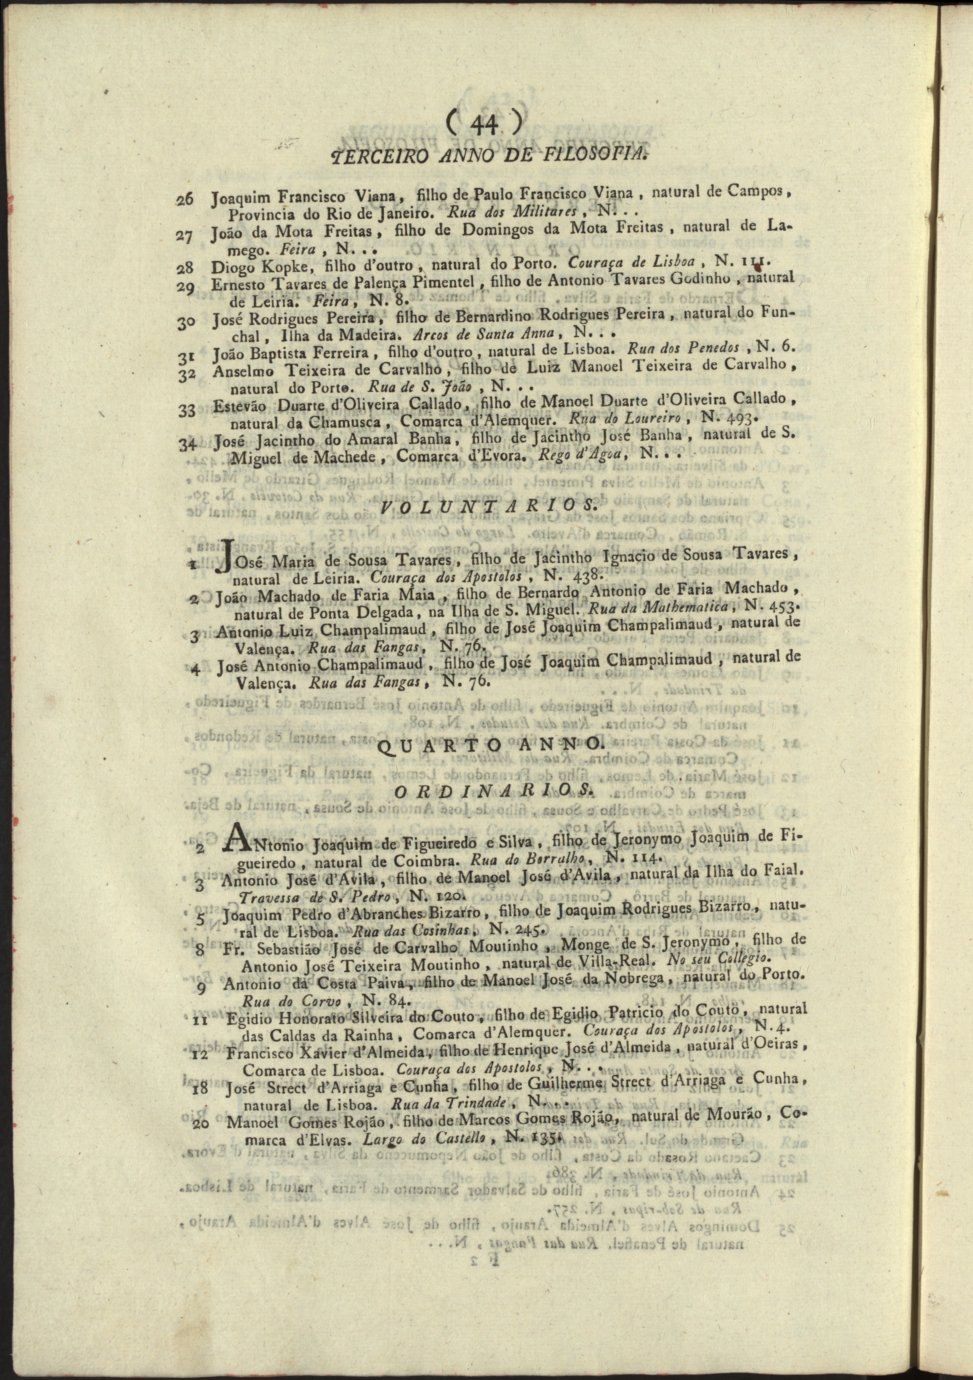 ( 44 )
TERCEIRO ANNO DE FILOSOFIA.
26 Joaquim Francisco Viana, filho de Paulo Francisco Viana, natural de Campos,
Provincia do Rio de Janeiro. Rua dos Militares, N...
27 João da Mota Freitas, filho de Domingos da Mota Freitas, natural de La-
mego. Feira, N...
28 Diogo Kopke, filho d'outro, natural do Porto. Couraça de Lisboa, N. 111.
29 Ernesto Tavares de Palença Pimentel, filho de Antonio Tavares Godinho, natural
de Leiria. Feira, N. 8.
30 José Rodrigues Pereira, filho de Bernardino Rodrigues Pereira, natural do Fun-
chal, Ilha da Madeira. Arcos de Santa Anna, N...
31 João Baptista Ferreira, filho d'outro, natural de Lisboa. Rua dos Penedos, N. 6.
32 Anselmo Teixeira de Carvalho, filho de Luiz Manoel Teixeira de Carvalho,
natural do Porto. Rua de S. João, N...
33 Estevão Duarte d'Oliveira Callado, filho de Manoel Duarte d'Oliveira Callado,
natural da Chamusca, Comarca d'Alemquer. Rua do Loureiro, N. 493.
34 José Jacintho do Amaral Banha, filho de Jacintho José Banha, natural de S.
Miguel de Machede, Comarca d'Evora. Rego d'Agoa, N...
VOLUNTARIOS.
1 JOsé Maria de Sousa Tavares, filho de Jacintho Ignacio de Sousa Tavares,
natural de Leiria. Couraça dos Apostolos, N. 438.
2 João Machado de Faria Maia, filho de Bernardo Antonio de Faria Machado,
natural de Ponta Delgada, na Ilha de S. Miguel. Rua da Mathematica, N. 453.
3 Antonio Luiz Champalimaud, filho de José Joaquim Champalimaud, natural de
Valença. Rua das Fangas, N. 76.
4 José Antonio Champalimaud, filho de José Joaquim Champalimaud, natural de
Valença. Rua das Fangas, N. 76.
QUARTO ANNO.
ORDINARIOS.
2 ANtonio Joaquim de Figueiredo e Silva, filho de Jeronymo Joaquim de Fi-
gueiredo, natural de Coimbra. Rua do Borralho, N. 114.
3 Antonio José d'Avila, filho de Manoel José d'Avila, natural da Ilha do Faial.
Travessa de S. Pedro, N. 120.
5 Joaquim Pedro d'Abranches Bizarro, filho de Joaquim Rodrigues Bizarro, natu-
ral de Lisboa. Rua das Cosinhas, N. 245.
8 Fr. Sebastião José de Carvalho Moutinho, Monge de S. Jeronymo, filho de
Antonio José Teixeira Moutinho, natural de Villa-Real. No seu Collegio.
9 Antonio da Costa Paiva, filho de Manoel José da Nobrega, natural do Porto.
Rua do Corvo, N. 84.
11 Egidio Honorato Silveira do Couto, filho de Egidio Patricio do Couto, natural
das Caldas da Rainha, Comarca d'Alemquer. Couraça dos Apostolos, N. 4.
12 Francisco Xavier d'Almeida, filho de Henrique José d'Almeida, natural d'Oeiras,
Comarca de Lisboa. Couraça dos Apostolos, N...
18 José Strect d'Arriaga e Cunha, filho de Guilherme Strect d'Arriaga e Cunha,
natural de Lisboa. Rua da Trindade, N...
20 Manoel Gomes Rojão, filho de Marcos Gomes Rojão, natural de Mourão, Co-
marca d'Elvas. Largo do Castello, N. 135.